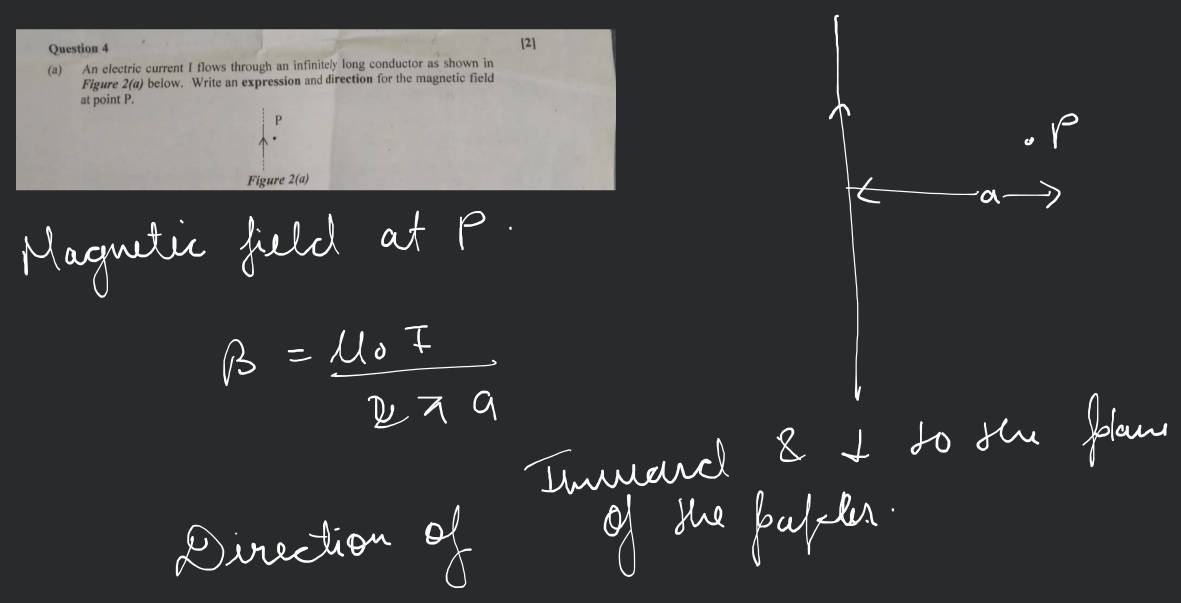 Question 4
[2]
(a) An electric current I flows through an infinitely long conductor as shown in
Figure 2(a) below. Write an expression and direction for the magnetic field
at point P.
P
Figure 2(a)
P
a
Magnetic field at P.
B = μ₀ I
2 π a
Inward & ⊥ to the plane
of the paper.
Direction of